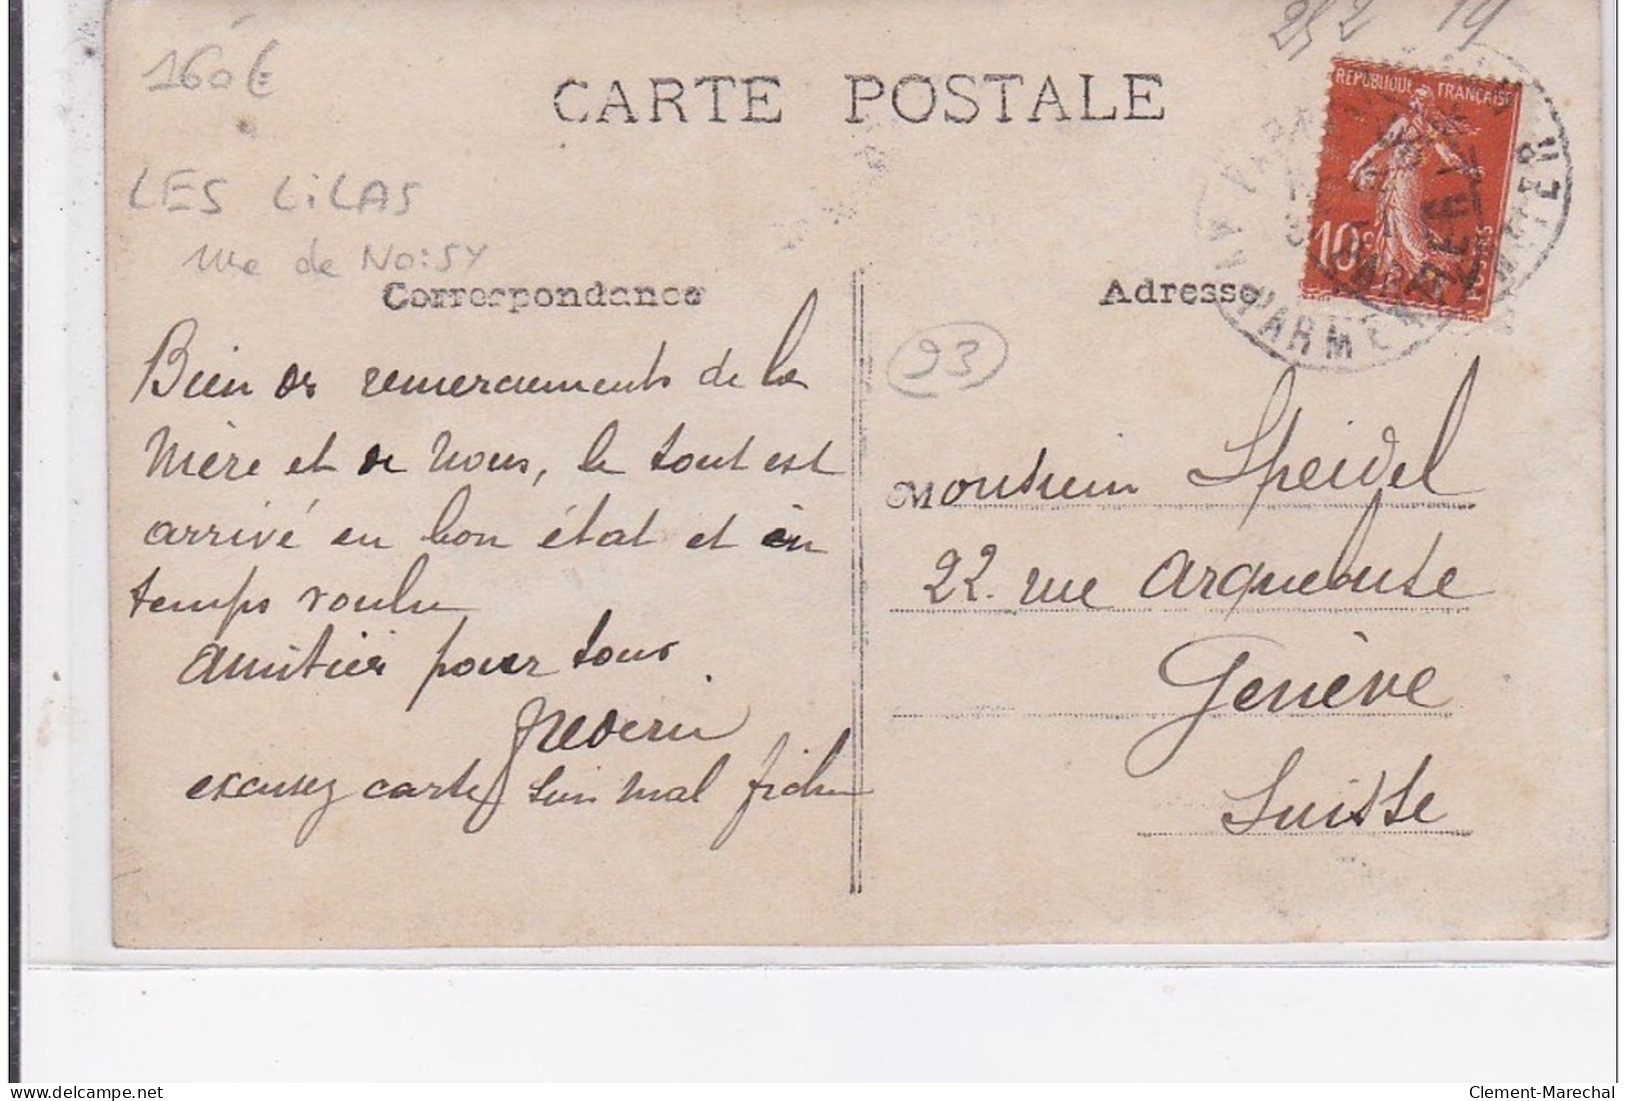 252 19
160€
CARTE POSTALE
REPUBLIQUE FRANÇAISE
10c
LES LiLAS
rue de NOiSY
Correspondance
Adresse
PARMENTIER
93
Bien des remerciements de la
Mère et de Nous, le tout est
arrivé en bon état et en
temps voulu
Amitiés pour tous
excusez carte suis mal fichu
Monsieur Speidel
22 rue Arquebuse
Genève
Suisse
Clement-Marechal